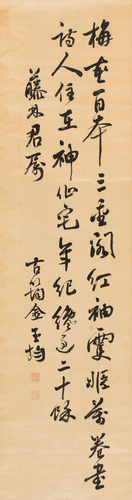 梅花百本三重閣紅袖雙姬萬卷書
詩人住在神仙宅年紀纔過二十餘
藤井君屬
古筠金玉均